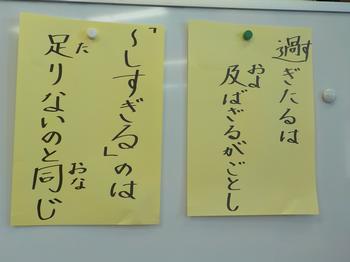 過ぎたるは
及ばざるがごとし
「～しすぎる」のは
足りないのと同じ
す
およ
た
おな